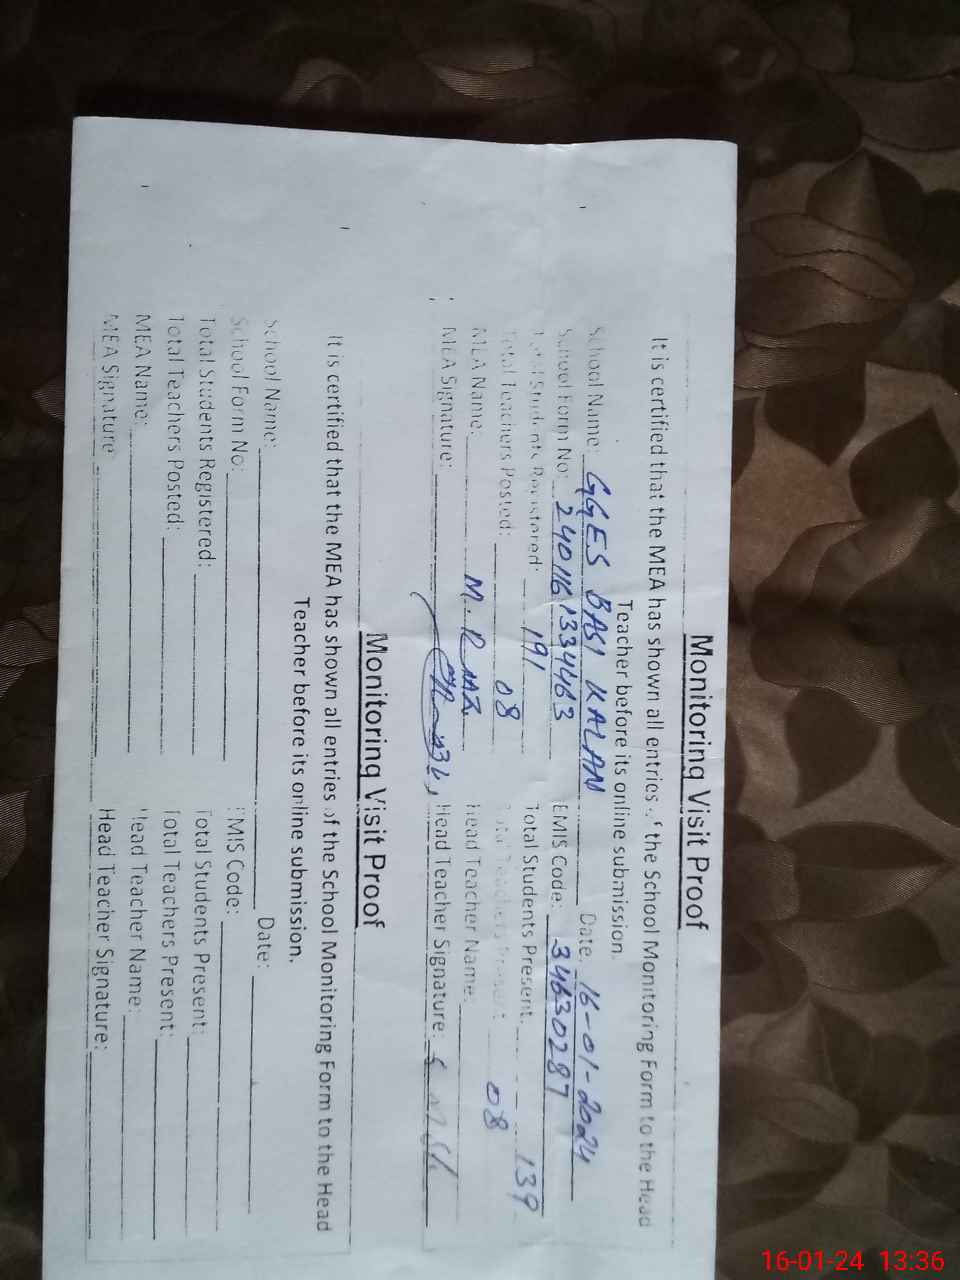 Monitoring Visit Proof
It is certified that the MEA has shown all entries of the School Monitoring Form to the Head
Teacher before its online submission.
School Name: GGES BASI KALAN Date: 16-01-2024
School Form No: 2401161334463 EMIS Code: 34630287
Total Students Registered: 191 Total Students Present: 139
Total Teachers Posted: 08 Total Teachers Present: 08
MEA Name: Head Teacher Name:
MEA Signature: Head Teacher Signature:
Monitoring Visit Proof
It is certified that the MEA has shown all entries of the School Monitoring Form to the Head
Teacher before its online submission.
School Name: Date:
School Form No: EMIS Code:
Total Students Registered: Total Students Present:
Total Teachers Posted: Total Teachers Present:
MEA Name: Head Teacher Name:
MEA Signature Head Teacher Signature:
16-01-24 13:36